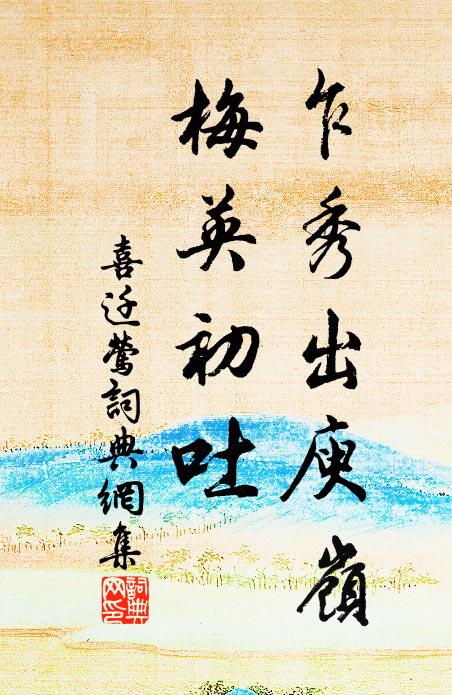 乍秀出庾嶺
梅英初吐
喜迁鶯詞典網集